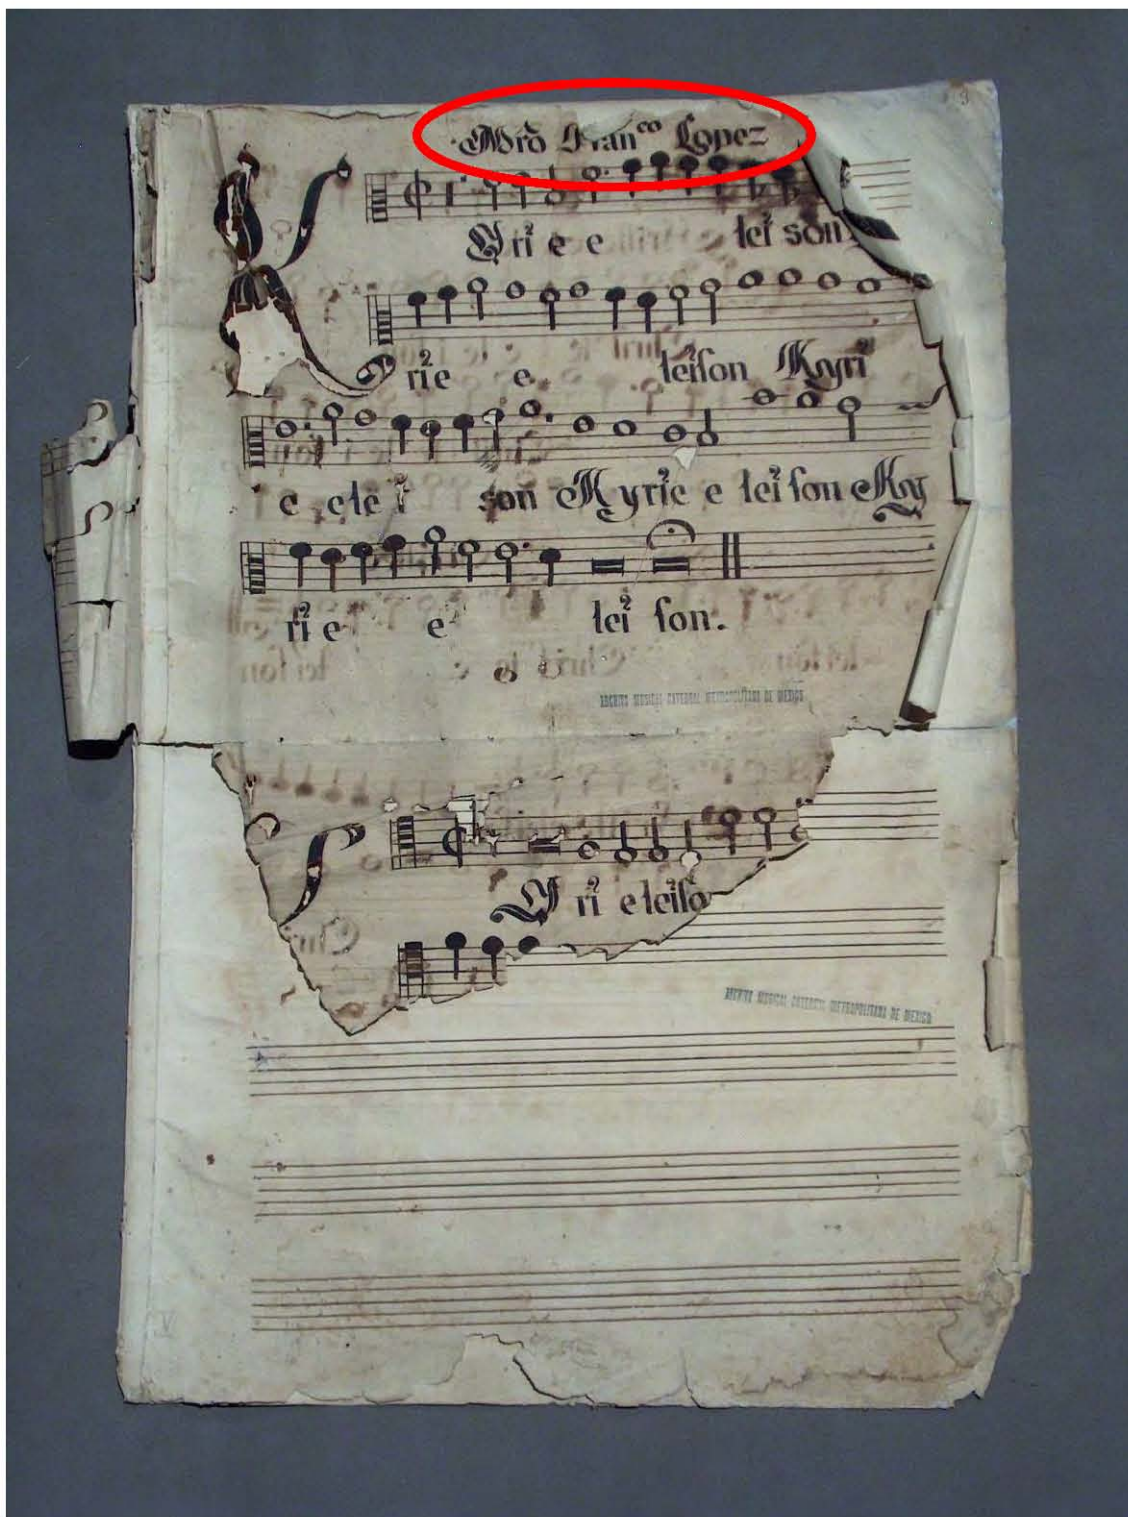 Mrõ Fran^co Lopez
Yri e e lei son
rie e leison Kyri
e ele i son Kyrie e lei son Ky
ri e e lei son.
ARCHIVO MUSICAL CATEDRAL METROPOLITANA DE MEXICO
Y ri e leiso
ARCHIVO MUSICAL CATEDRAL METROPOLITANA DE MEXICO